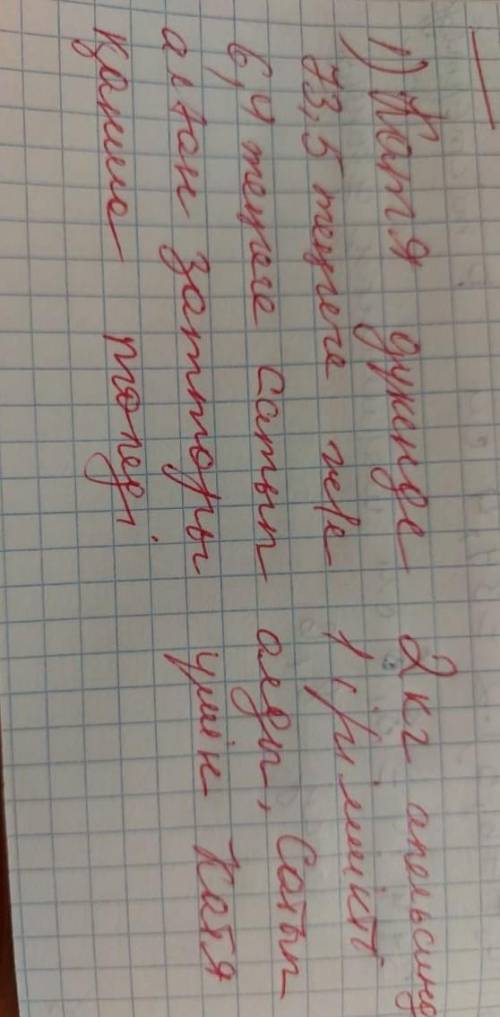 1) Катя дукенде 2 кг апельсинд
73,5 теңгеге және 1 ірімшікті
6,4 теңгеге сатып алды. Сатып
алған заттары үшін Катя
қанша төледі